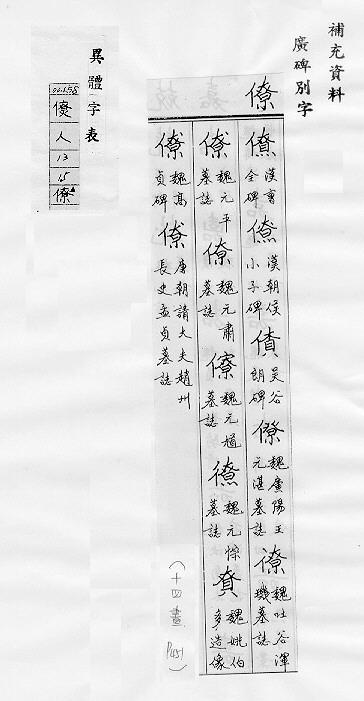 補充資料
廣碑別字
僚
僚 漢曹全碑 僚 漢朝侯小子碑 吳谷朗碑 僚 魏廣陽王元湛墓誌 僚 魏吐谷渾璣墓誌
僚 魏元平墓誌 僚 魏元肅墓誌 僚 魏元墓誌 魏元悰墓誌 魏姚伯多造像
僚 魏高貞碑 僚 唐朝請大夫趙州長史孟貞墓誌
(十四畫 P451)
異體字表
人
13
15
僚